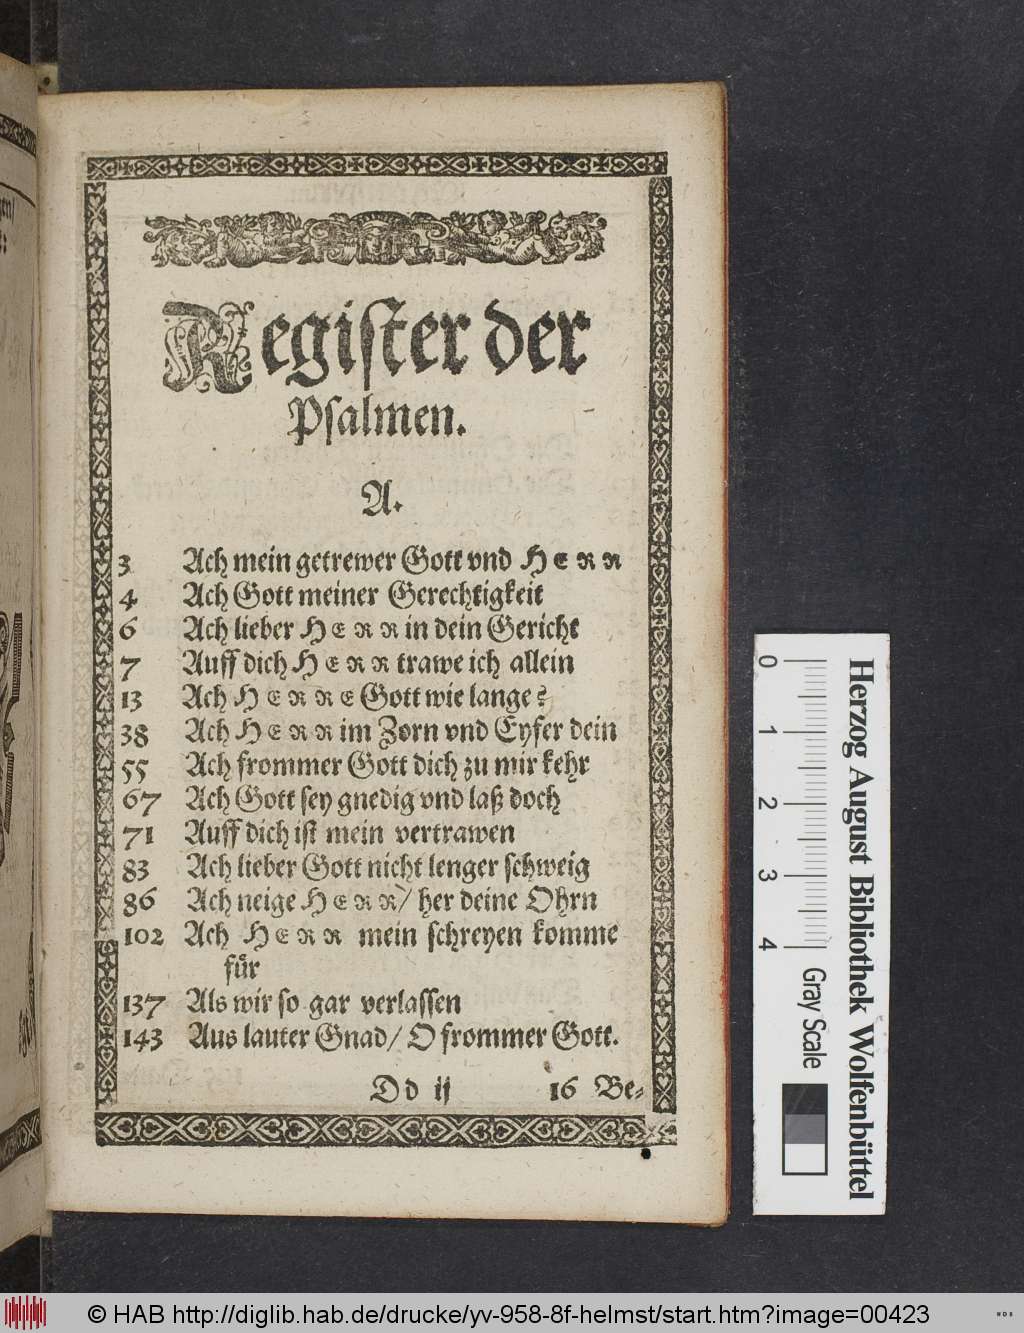 Register der
Psalmen.
A.
3 Ach mein getrewer Gott vnd HERR
4 Ach Gott meiner Gerechtigkeit
6 Ach lieber HERR in dein Gericht
7 Auff dich HERR trawe ich allein
13 Ach HERRE Gott wie lange?
38 Ach HERR im Zorn vnd Eyfer dein
55 Ach frommer Gott dich zu mir kehr
67 Ach Gott sey gnedig vnd laß doch
71 Auff dich ist mein vertrawen
83 Ach lieber Gott nicht lenger schweig
86 Ach neige HERR/ her deine Ohrn
102 Ach HERR mein schreyen komme
fůr
137 Als wir so gar verlassen
143 Aus lauter Gnad/ O frommer Gott.
Dd ij 16 Be-
0 1 2 3 4
Gray Scale
Herzog August Bibliothek Wolfenbüttel
© HAB http://diglib.hab.de/drucke/yv-958-8f-helmst/start.htm?image=00423